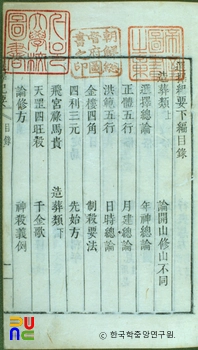 紀要下編目錄
造葬類 論開山修山不同
選擇總論 年神總論
正體五行 月建總論
洪範五行 日時總論
金樓四角 制殺要法
四利三元 先始方
飛宮祿馬貴 造葬類下
天罡四旺殺 千金歌
論修方 神殺義例
目錄
朝鮮總督府圖書之印
大學校圖書
© 한국학중앙연구원.